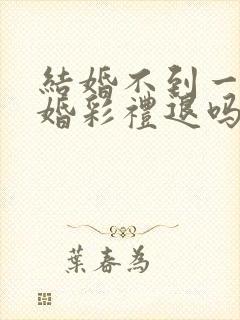 結婚不到一
婚彩禮退吗
葉春為